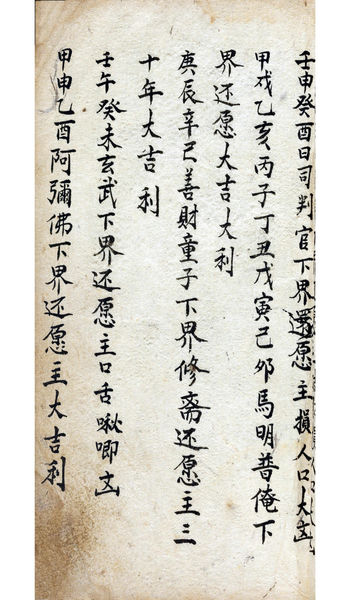 壬申癸酉日司判官下界還愿主損人口大凶
甲戌乙亥丙子丁丑戊寅己夘馬明普俺下
界还愿大吉大利
庚辰辛巳善財童子下界修斋还愿主三
十年大吉利
壬午癸未玄武下界还愿主口舌啾唧凶
甲申乙酉阿彌佛下界还愿主大吉利